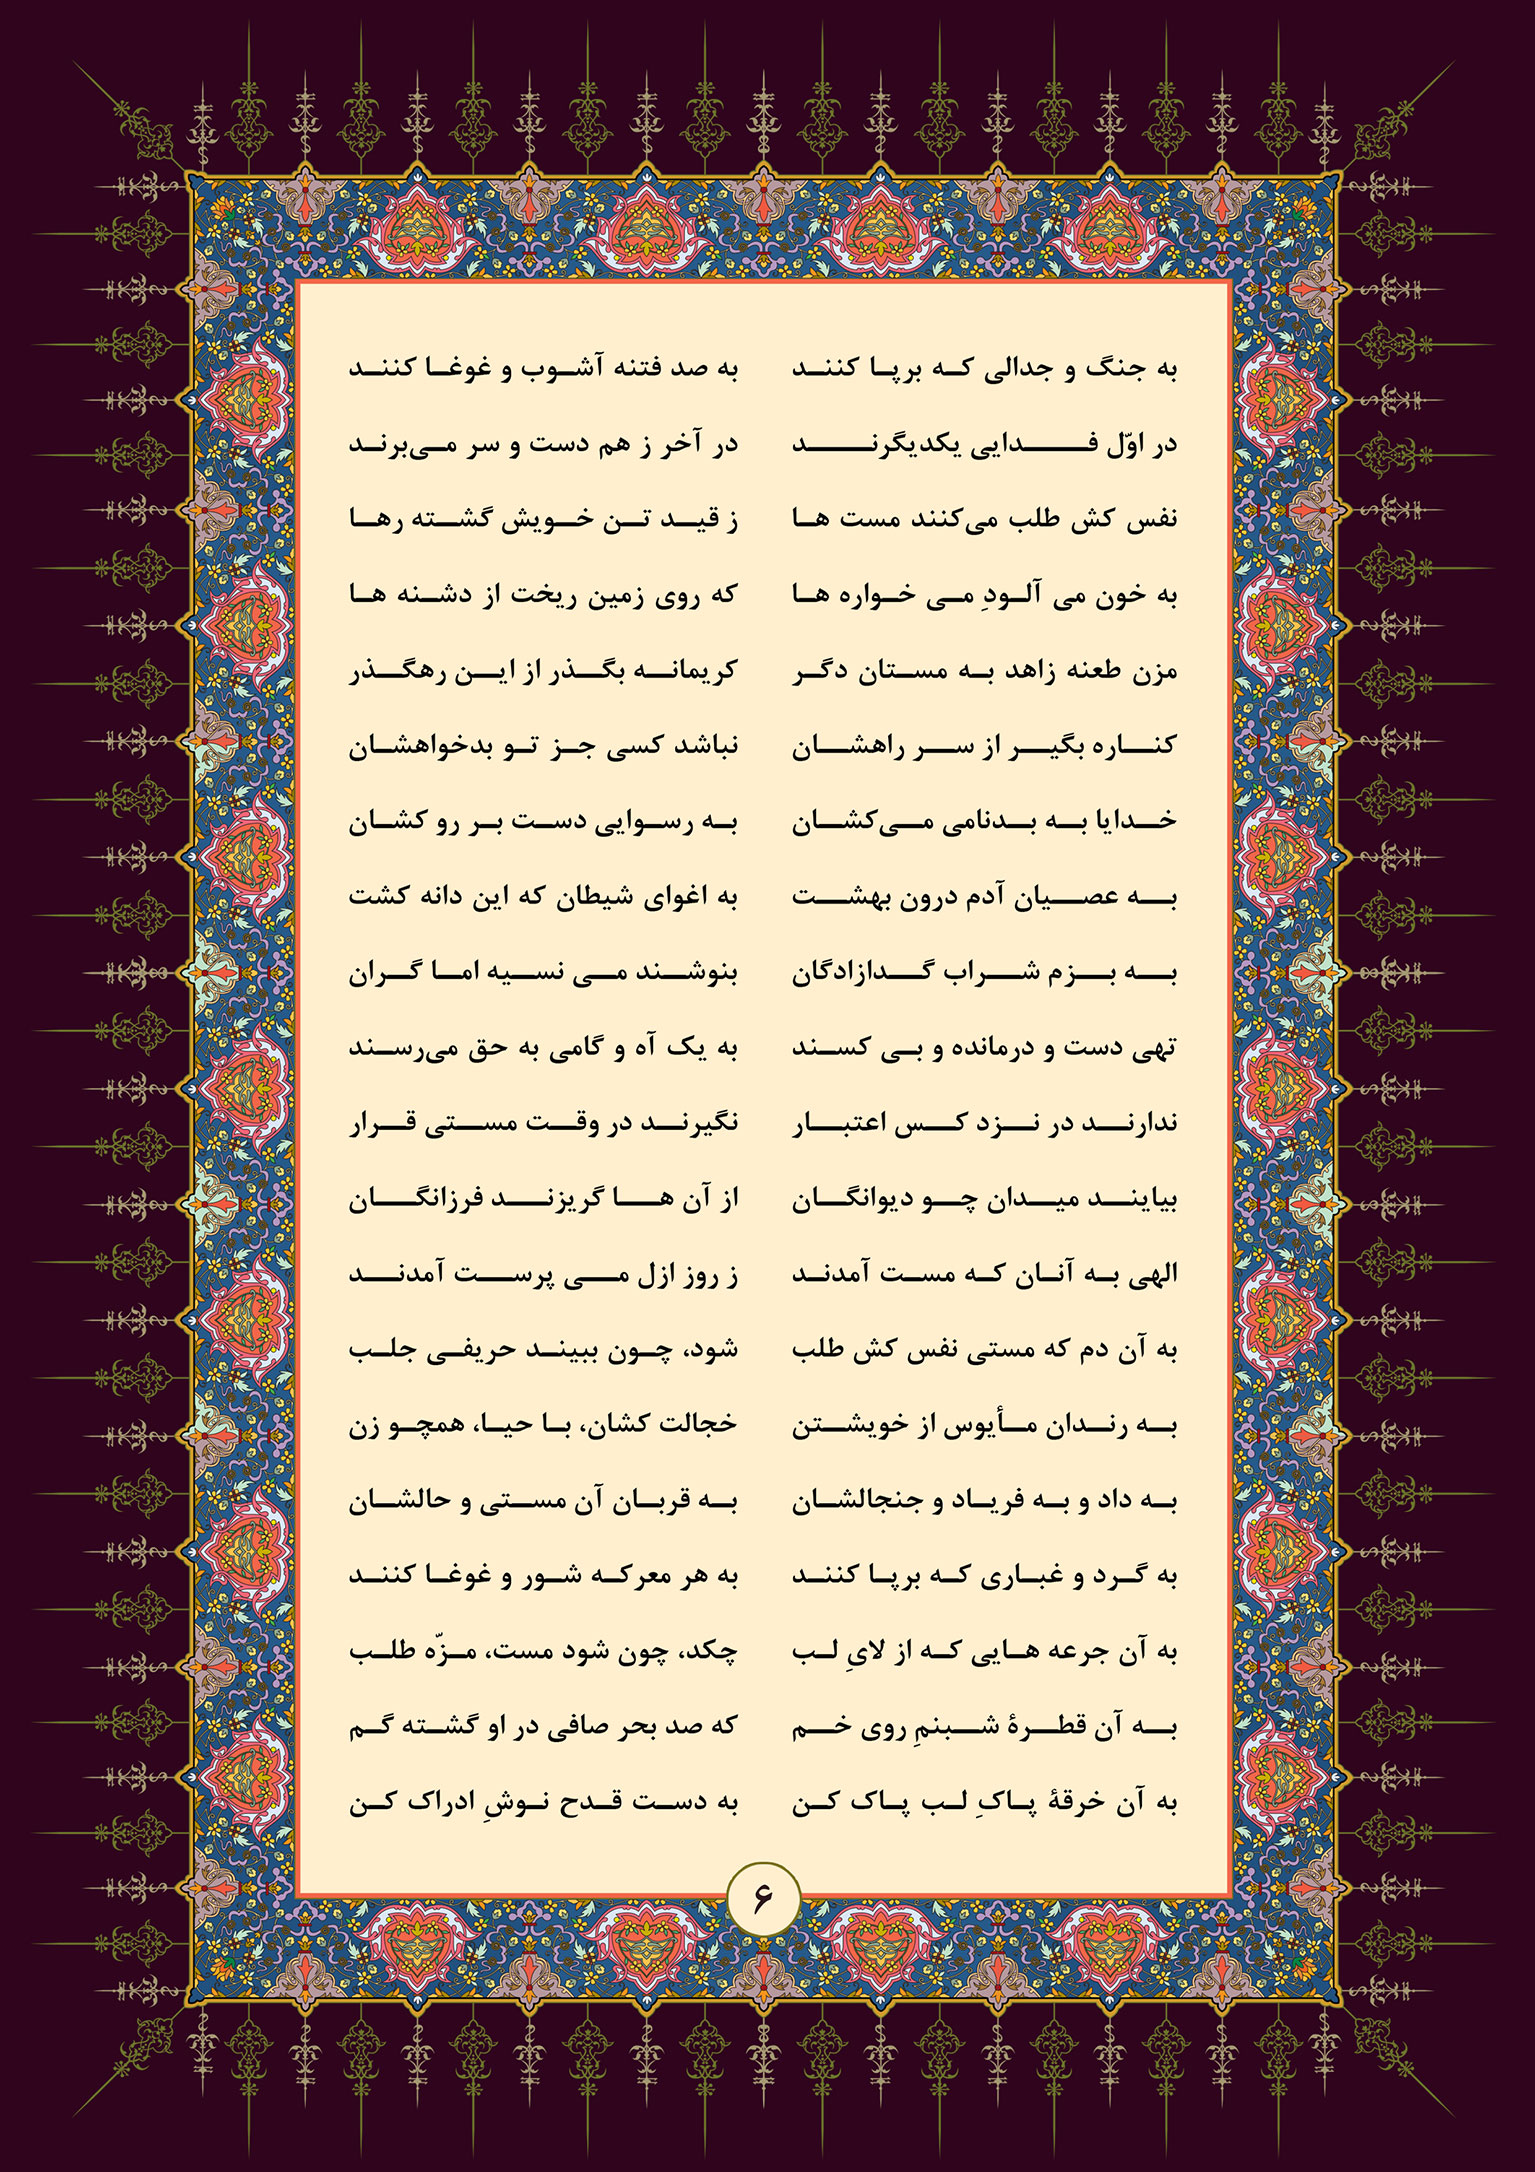 به جنگ و جدالی که برپا کنند به صد فتنه آشوب و غوغا کنند
در اوّل فدایی یکدیگرند در آخر ز هم دست و سر می‌برند
نفس کش طلب می‌کنند مست ها ز قید تن خویش گشته رها
به خون می آلودِ می خواره ها که روی زمین ریخت از دشنه ها
مزن طعنه زاهد به مستان دگر کریمانه بگذر از این رهگذر
کناره بگیر از سر راهشان نباشد کسی جز تو بدخواهشان
خدایا به بدنامی می‌کشان به رسوایی دست بر رو کشان
به عصیان آدم درون بهشت به اغوای شیطان که این دانه کشت
به بزم شراب گدازادگان بنوشند می نسیه اما گران
تهی دست و درمانده و بی کسند به یک آه و گامی به حق می‌رسند
ندارند در نزد کس اعتبار نگیرند در وقت مستی قرار
بیایند میدان چو دیوانگان از آن ها گریزند فرزانگان
الهی به آنان که مست آمدند ز روز ازل می پرست آمدند
به آن دم که مستی نفس کش طلب شود، چون ببیند حریفی جلب
به رندان مأیوس از خویشتن خجالت کشان، با حیا، همچو زن
به داد و به فریاد و جنجالشان به قربان آن مستی و حالشان
به گرد و غباری که برپا کنند به هر معرکه شور و غوغا کنند
به آن جرعه هایی که از لایِ لب چکد، چون شود مست، مزّه طلب
به آن قطرهٔ شبنمِ روی خم که صد بحر صافی در او گشته گم
به آن خرقهٔ پاکِ لب پاک کن به دست قدح نوشِ ادراک کن
۶